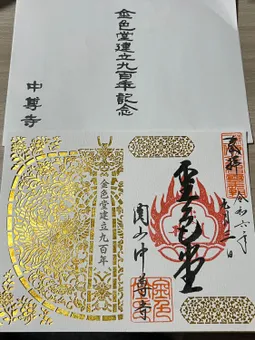 金色堂建立九百年記念
中尊寺
奉拝
令和六年
金色堂
関山中尊寺
金色堂建立九百年